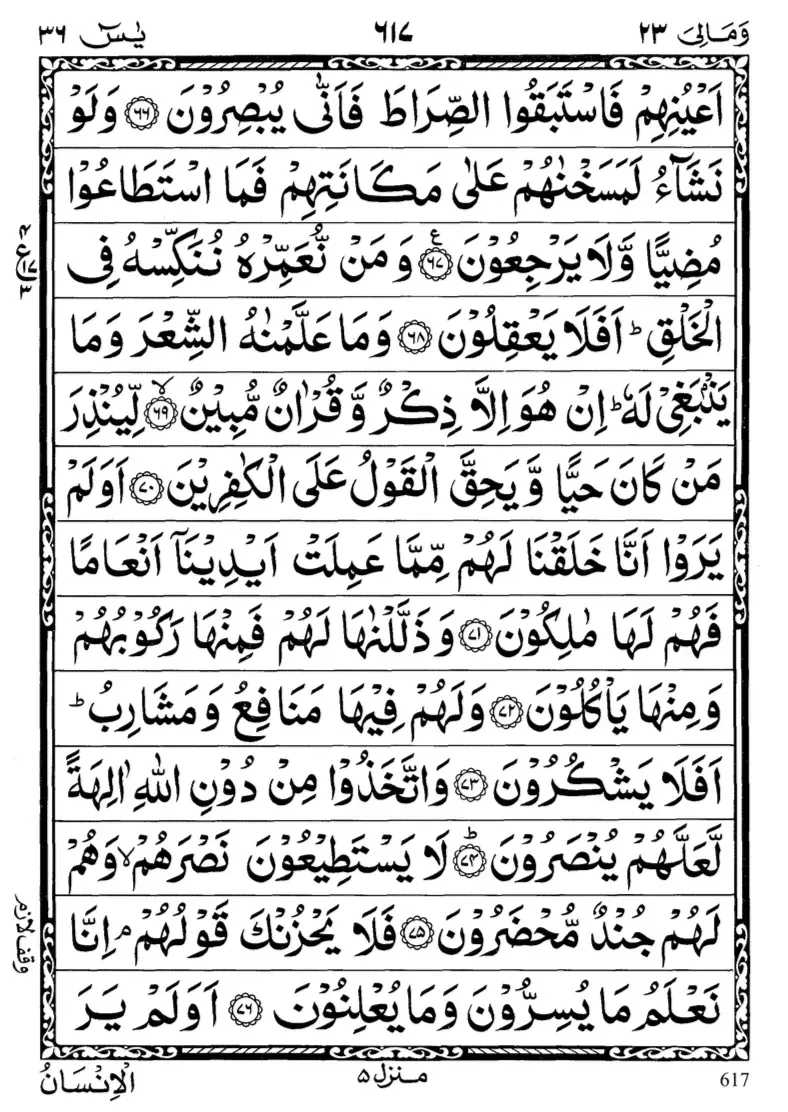 وَمَالِیَ ٢٣
٦١٧
یٰسٓ ٣٦
اَعْیُنِهِمْ فَاسْتَبَقُوا الصِّرَاطَ فَاَنّٰی یُبْصِرُوْنَ ﴿٦٦﴾ وَلَوْ
نَشَآءُ لَمَسَخْنٰهُمْ عَلٰی مَكَانَتِهِمْ فَمَا اسْتَطَاعُوْا
مُضِیًّا وَّلَا یَرْجِعُوْنَ ﴿٦٧﴾ۧ وَمَنْ نُّعَمِّرْهُ نُنَكِّسْهُ فِی
الْخَلْقِ ؕ اَفَلَا یَعْقِلُوْنَ ﴿٦٨﴾ وَمَا عَلَّمْنٰهُ الشِّعْرَ وَمَا
یَنْۢبَغِیْ لَهٗ ؕ اِنْ هُوَ اِلَّا ذِكْرٌ وَّ قُرْاٰنٌ مُّبِیْنٌ ﴿٦٩﴾ۙ لِّیُنْذِرَ
مَنْ كَانَ حَیًّا وَّ یَحِقَّ الْقَوْلُ عَلَی الْكٰفِرِیْنَ ﴿٧٠﴾ اَوَلَمْ
یَرَوْا اَنَّا خَلَقْنَا لَهُمْ مِّمَّا عَمِلَتْ اَیْدِیْنَاۤ اَنْعَامًا
فَهُمْ لَهَا مٰلِكُوْنَ ﴿٧١﴾ وَذَلَّلْنٰهَا لَهُمْ فَمِنْهَا رَكُوْبُهُمْ
وَمِنْهَا یَاْكُلُوْنَ ﴿٧٢﴾ وَلَهُمْ فِیْهَا مَنَافِعُ وَمَشَارِبُ ؕ
اَفَلَا یَشْكُرُوْنَ ﴿٧٣﴾ وَاتَّخَذُوْا مِنْ دُوْنِ اللّٰهِ اٰلِهَةً
لَّعَلَّهُمْ یُنْصَرُوْنَ ﴿٧٤﴾ؕ لَا یَسْتَطِیْعُوْنَ نَصْرَهُمْ ۙ وَهُمْ
لَهُمْ جُنْدٌ مُّحْضَرُوْنَ ﴿٧٥﴾ فَلَا یَحْزُنْكَ قَوْلُهُمْ ۘ اِنَّا
وقف لازم
نَعْلَمُ مَا یُسِرُّوْنَ وَمَا یُعْلِنُوْنَ ﴿٧٦﴾ اَوَلَمْ یَرَ
الْاِنْسَانُ
منزل ٥
617